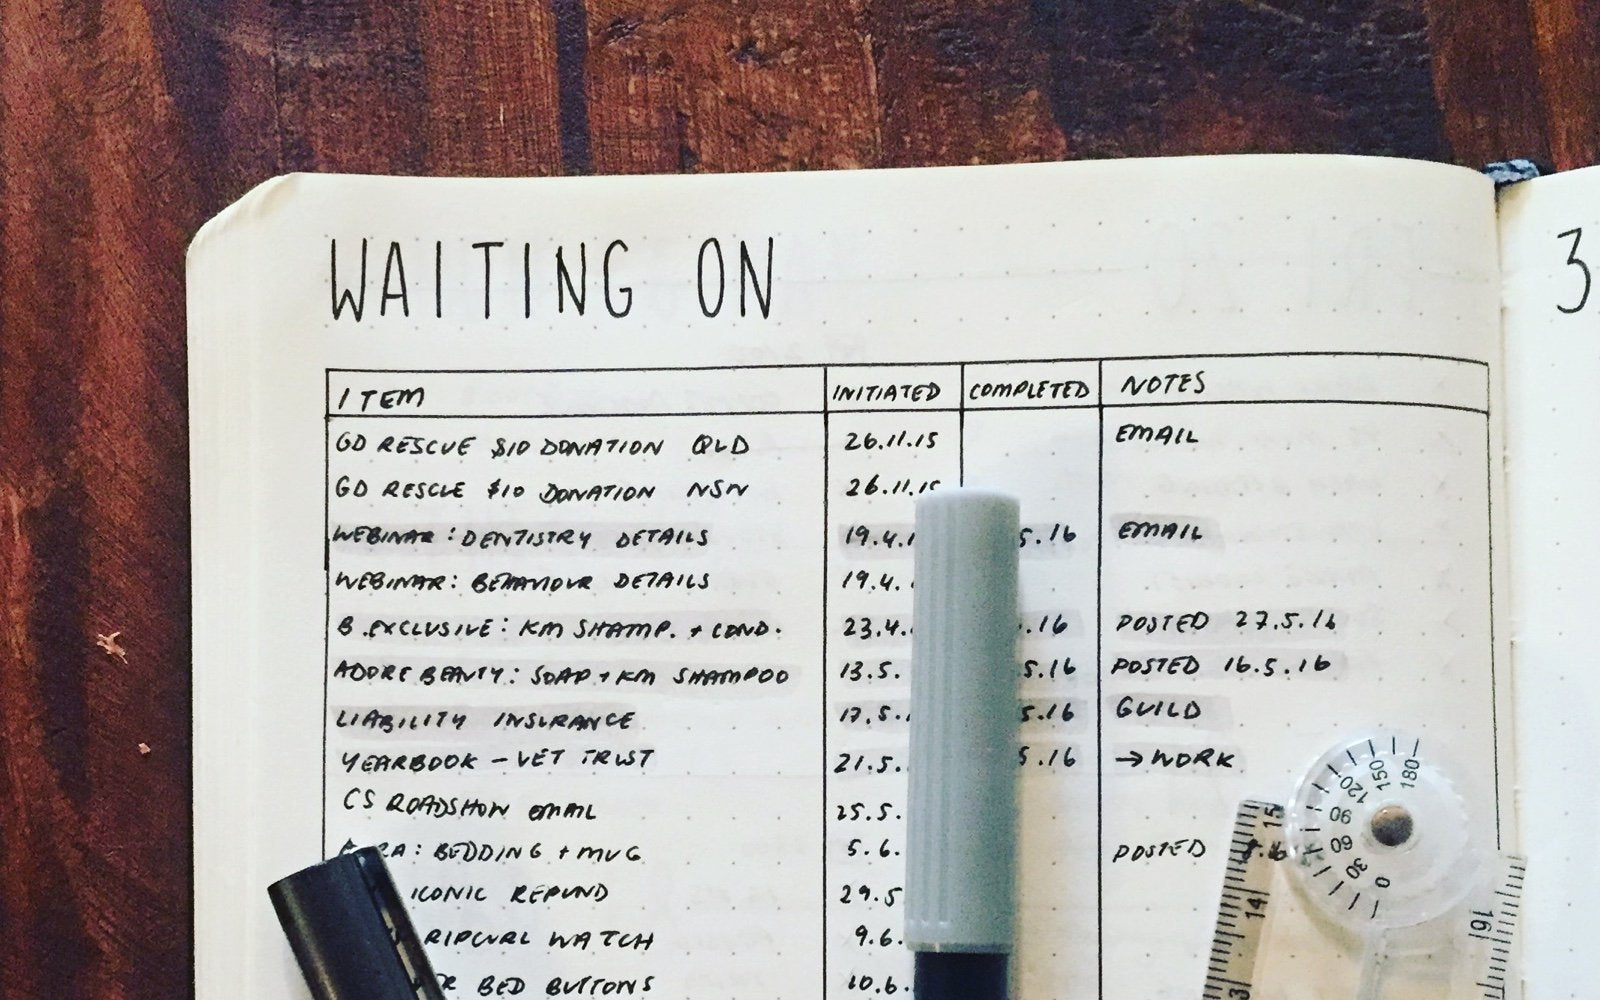 WAITING ON
3
ITEM INITIATED COMPLETED NOTES
GD RESCUE $10 DONATION QLD 26.11.15 EMAIL
GD RESCUE $10 DONATION NSW 26.11.15
WEBINAR: DENTISTRY DETAILS 19.4.1 5.16 EMAIL
WEBINAR: BEHAVIOUR DETAILS 19.4.
B.EXCLUSIVE: KM SHAMP. + COND. 23.4. .16 POSTED 27.5.16
ADORE BEAUTY: SOAP + KM SHAMPOO 13.5. 5.16 POSTED 16.5.16
LIABILITY INSURANCE 17.5. 5.16 GUILD
YEARBOOK - VET TRUST 21.5. 5.16 → WORK
CS ROADSHOW EMAIL 25.5.
RA: BEDDING + MUG 5.6. POSTED
ICONIC REFUND 29.5
RIPCURL WATCH 9.6.
BED BUTTONS 10.6.
0 30 60 90 120 150 180
15
14
13
16